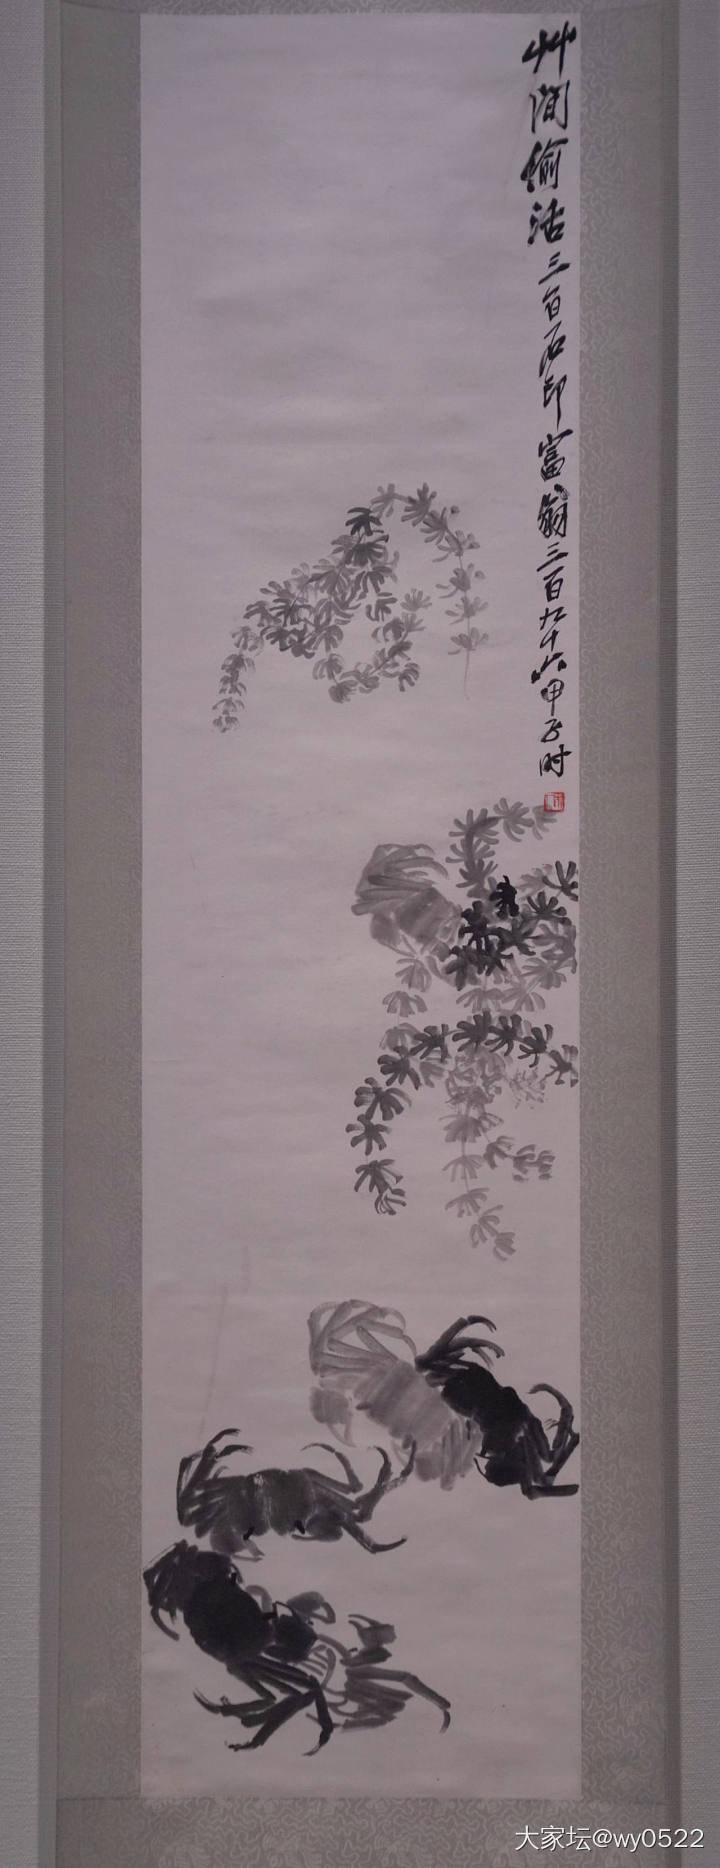 艸間偷活三百石印富翁三百九十六甲子时
大家坛@wy0522